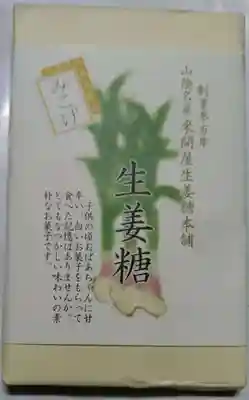 創業参百年
山陰名産 來間屋生姜糖本舗
生姜糖
子供の頃おばあちゃんに甘
辛い、白いお菓子をもらって
食べた記憶はありませんか。
とてもなつかしい味わいの素
朴なお菓子です。